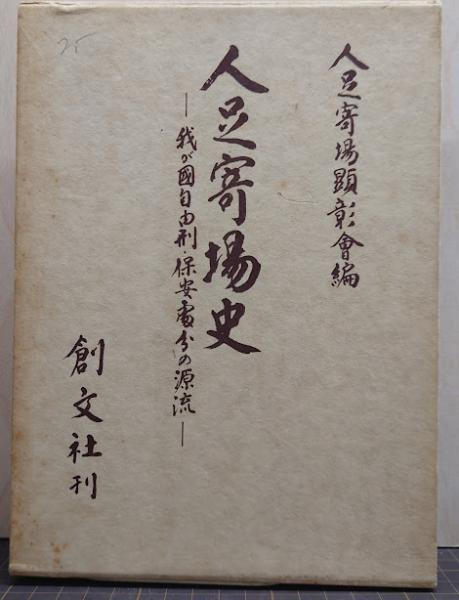 人足寄場顕彰會編
人足寄場史
—我が國自由刑・保安處分の源流—
創文社刊
25